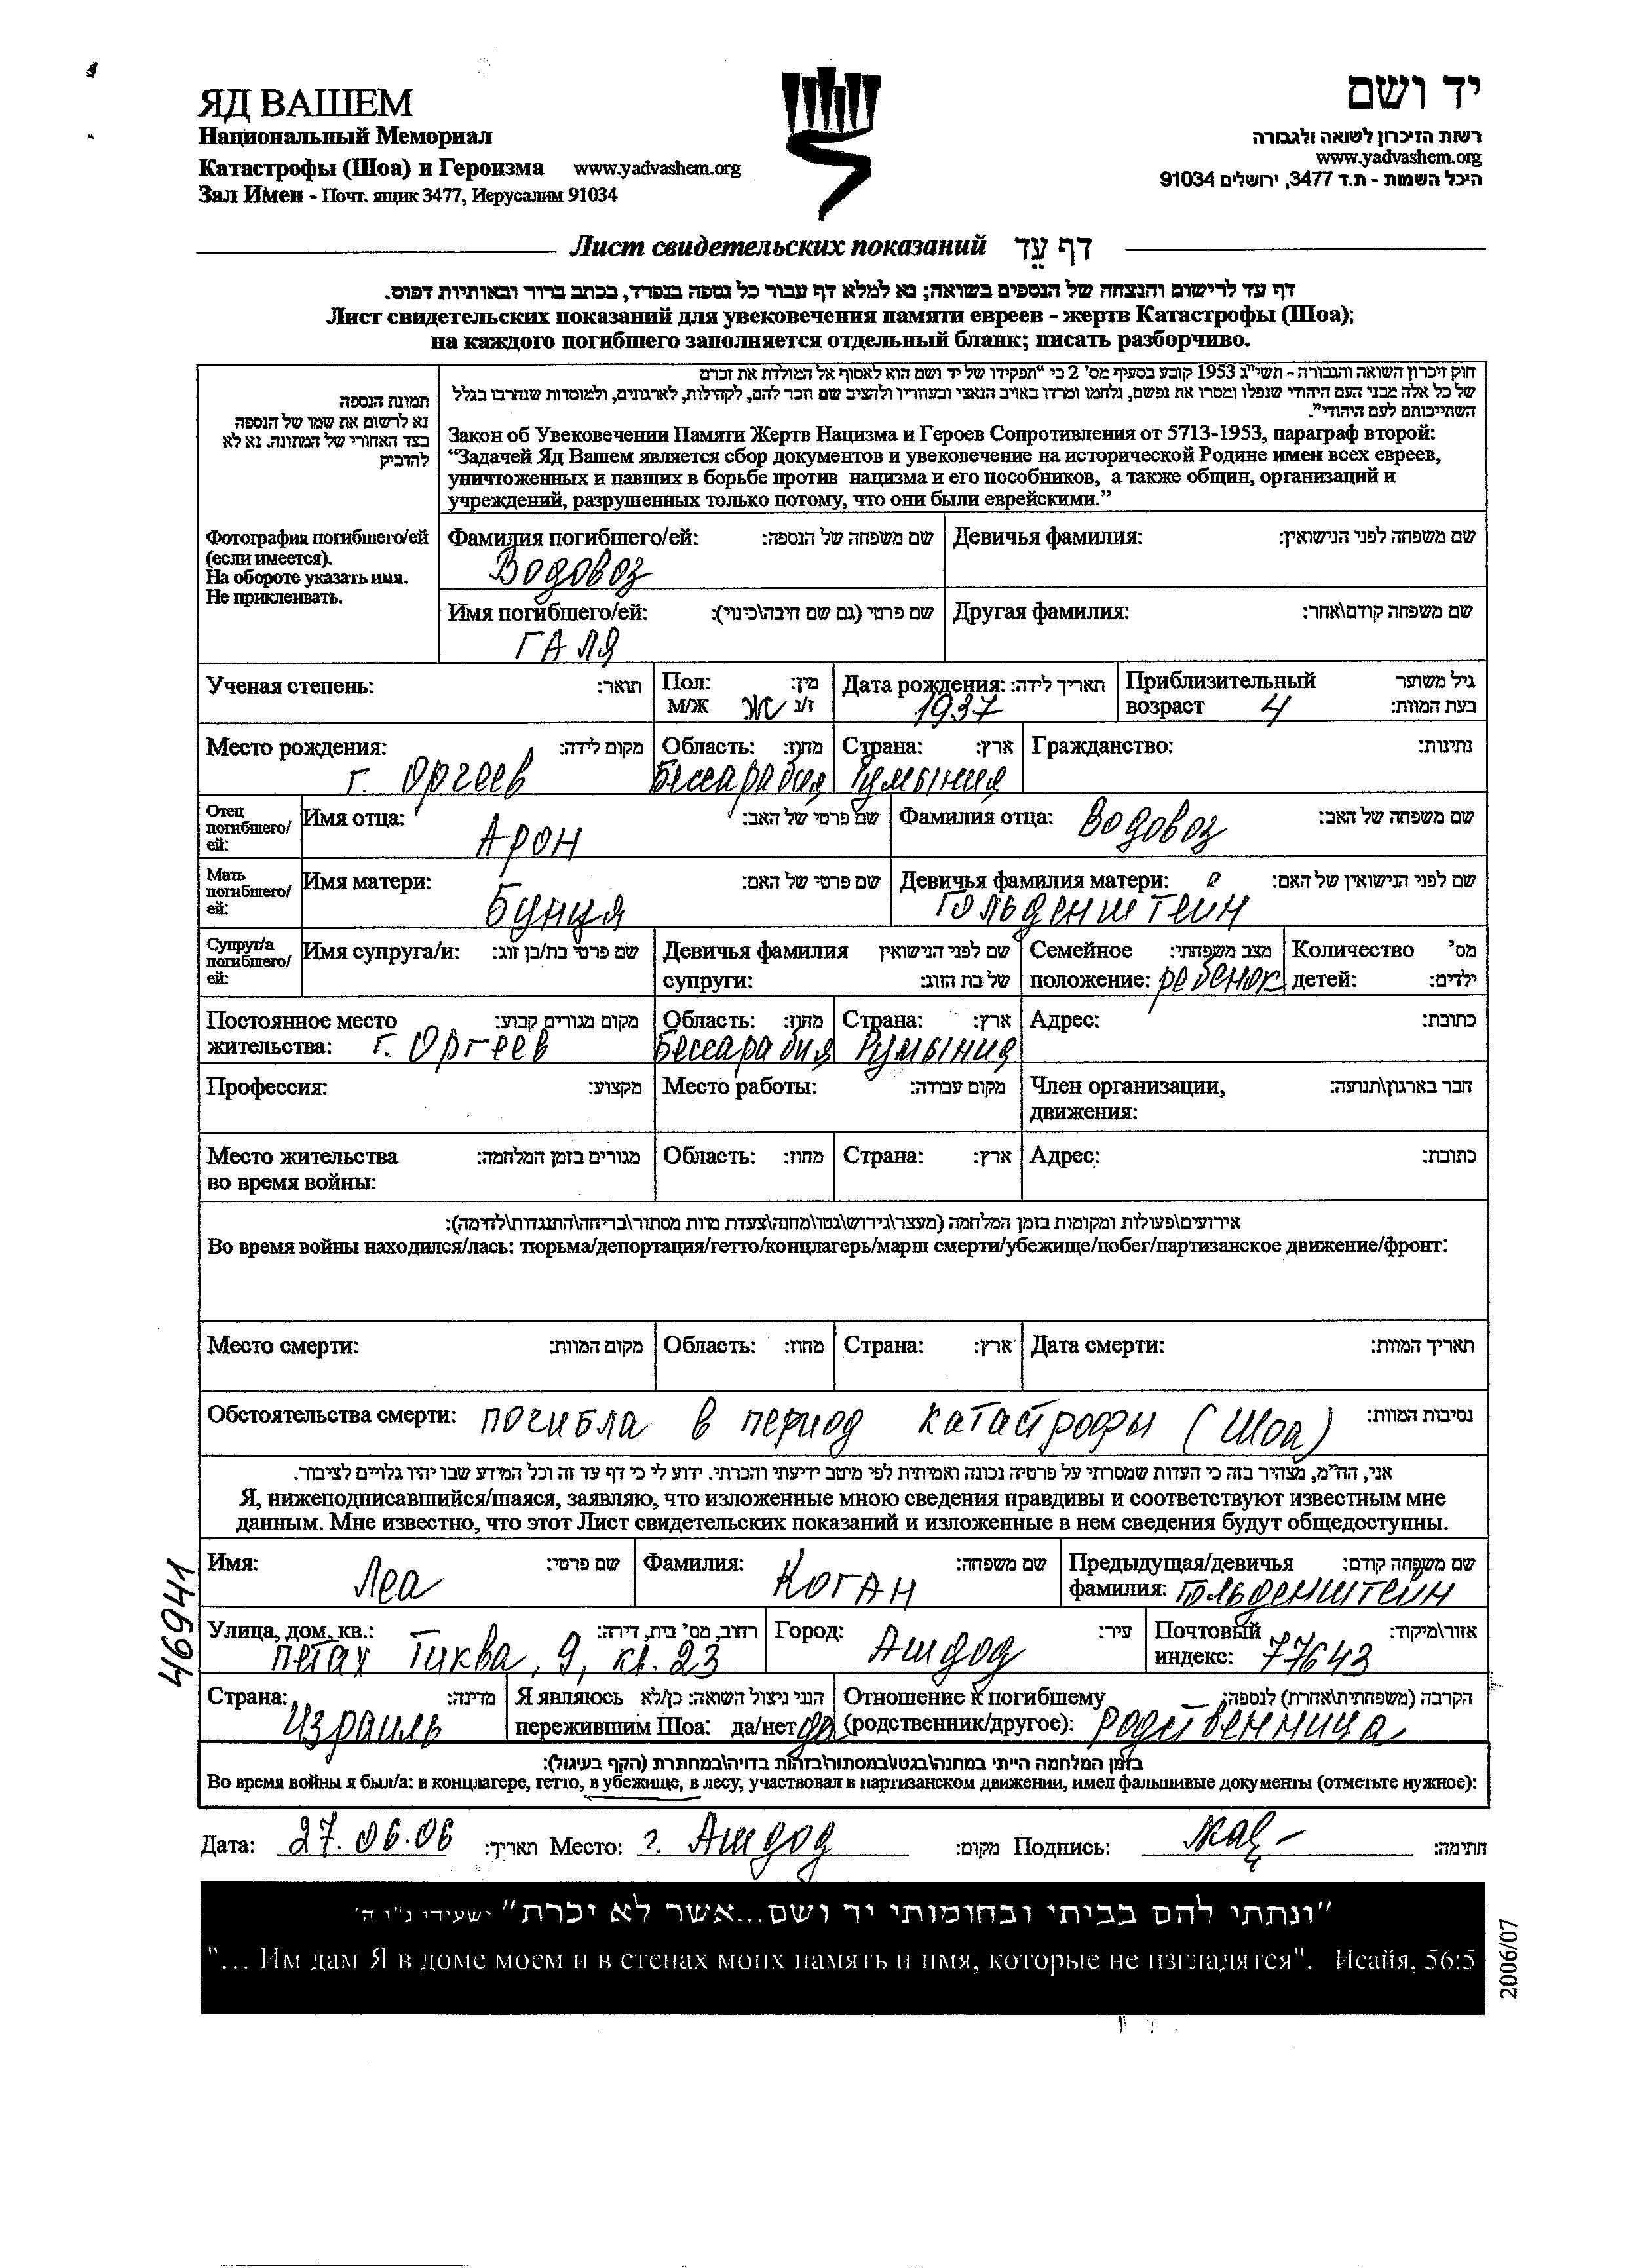 ЯД ВАШЕМ
Национальный Мемориал
Катастрофы (Шоа) и Героизма www.yadvashem.org
Зал Имен - Почт. ящик 3477, Иерусалим 91034
יד ושם
רשות הזיכרון לשואה ולגבורה
www.yadvashem.org
היכל השמות - ת.ד 3477, ירושלים 91034
Лист свидетельских показаний דף עֵד
דף עד לרישום והנצחה של הנספים בשואה; נא למלא דף עבור כל נספה בנפרד, בכתב ברור ובאותיות דפוס.
Лист свидетельских показаний для увековечения памяти евреев - жертв Катастрофы (Шоа);
на каждого погибшего заполняется отдельный бланк; писать разборчиво.
תמונת הנספה
נא לרשום את שמו של הנספה
בצד האחורי של התמונה. נא לא
להדביק
Фотография погибшего/ей
(если имеется).
На обороте указать имя.
Не приклеивать.
חוק זיכרון השואה והגבורה - תשי"ג 1953 קובע בסעיף מס' 2 כי "תפקידו של יד ושם הוא לאסוף אל המולדת את זכרם
של כל אלה מבני העם היהודי שנפלו ומסרו את נפשם, נלחמו ומרדו באויב הנאצי ובעוזריו ולהציב שם וזכר להם, לקהילות, לארגונים, ולמוסדות שנחרבו בגלל
השתייכותם לעם היהודי".
Закон об Увековечении Памяти Жертв Нацизма и Героев Сопротивления от 5713-1953, параграф второй:
"Задачей Яд Вашем является сбор документов и увековечение на исторической Родине имен всех евреев,
уничтоженных и павших в борьбе против нацизма и его пособников, а также общин, организаций и
учреждений, разрушенных только потому, что они были еврейскими."
Фамилия погибшего/ей: שם משפחה של הנספה: Девичья фамилия: שם משפחה לפני הנישואין:
Водовоз
Имя погибшего/ей: שם פרטי (גם שם חיבה\כינוי): Другая фамилия: שם משפחה קודם\אחר:
ГАЛЯ
Ученая степень: תואר: Пол: מין: Дата рождения: תאריך לידה: Приблизительный גיל משוער
М/Ж Ж ז/נ 1937 возраст 4 בעת המוות:
Место рождения: מקום לידה: Область: מחוז: Страна: ארץ: Гражданство: נתינות:
г. Оргеев Бессарабия Румыния
Отец погибшего/ей: Имя отца: שם פרטי של האב: Фамилия отца: Водовоз שם משפחה של האב:
АРОН
Мать погибшего/ей: Имя матери: שם פרטי של האם: Девичья фамилия матери: שם לפני הנישואין של האם:
Бунця Гольденштейн
Супруг/а погибшего/ей: Имя супруга/и: שם פרטי בת/בן זוג: Девичья фамилия שם לפני הנישואין Семейное מצב משפחתי: Количество מס'
супруги: של בת הזוג: положение: ребенок детей: ילדים:
Постоянное место מקום מגורים קבוע: Область: מחוז: Страна: ארץ: Адрес: כתובת:
жительства: г. Оргеев Бессарабия Румыния
Профессия: מקצוע: Место работы: מקום עבודה: Член организации, חבר בארגון\תנועה:
движения:
Место жительства מגורים בזמן המלחמה: Область: מחוז: Страна: ארץ: Адрес: כתובת:
во время войны:
אירועים\פעולות ומקומות בזמן המלחמה (מעצר\גירוש\גטו\מחנה\צעדת מוות מסתור\בריחה\התנגדות\לחימה):
Во время войны находился/лась: тюрьма/депортация/гетто/концлагерь/марш смерти/убежище/побег/партизанское движение/фронт:
Место смерти: מקום המוות: Область: מחוז: Страна: ארץ: Дата смерти: תאריך המוות:
Обстоятельства смерти: погибла в период катастрофы (Шоа) נסיבות המוות:
אני, הח"מ, מצהיר בזה כי העדות שמסרתי על פרטיה נכונה ואמיתית לפי מיטב ידיעתי והכרתי. ידוע לי כי דף עד זה וכל המידע שבו יהיו גלויים לציבור.
Я, нижеподписавшийся/шаяся, заявляю, что изложенные мною сведения правдивы и соответствуют известным мне
данным. Мне известно, что этот Лист свидетельских показаний и изложенные в нем сведения будут общедоступны.
Имя: שם פרטי: Фамилия: שם משפחה: Предыдущая/девичья שם משפחה קודם:
Леа Коган фамилия: Гольденштейн
Улица, дом, кв.: רחוב, מס' בית, דירה: Город: עיר: Почтовый אזור\מיקוד:
Петах Тиква, 9, кв. 23 Ашдод индекс: 77643
Страна: מדינה: Я являюсь הנני ניצול השואה: כן/לא Отношение к погибшему הקרבה (משפחתית\אחרת) לנספה:
Израиль пережившим Шоа: да/нет да (родственник/другое): родственница
בזמן המלחמה הייתי במחנה\בגטו\במסתור\בזהות בדויה\במחתרת (הקף בעיגול):
Во время войны я был/а: в концлагере, гетто, в убежище, в лесу, участвовал в партизанском движении, имел фальшивые документы (отметьте нужное):
Дата: 27.06.06 תאריך: Место: г. Ашдод מקום: Подпись: חתימה:
"ונתתי להם בביתי ובחומותי יד ושם...אשר לא יכרת" ישעיהו נ"ו ה'
"... Им дам Я в доме моем и в стенах моих память и имя, которые не изгладятся". Исайя, 56:5
46941
2006/07